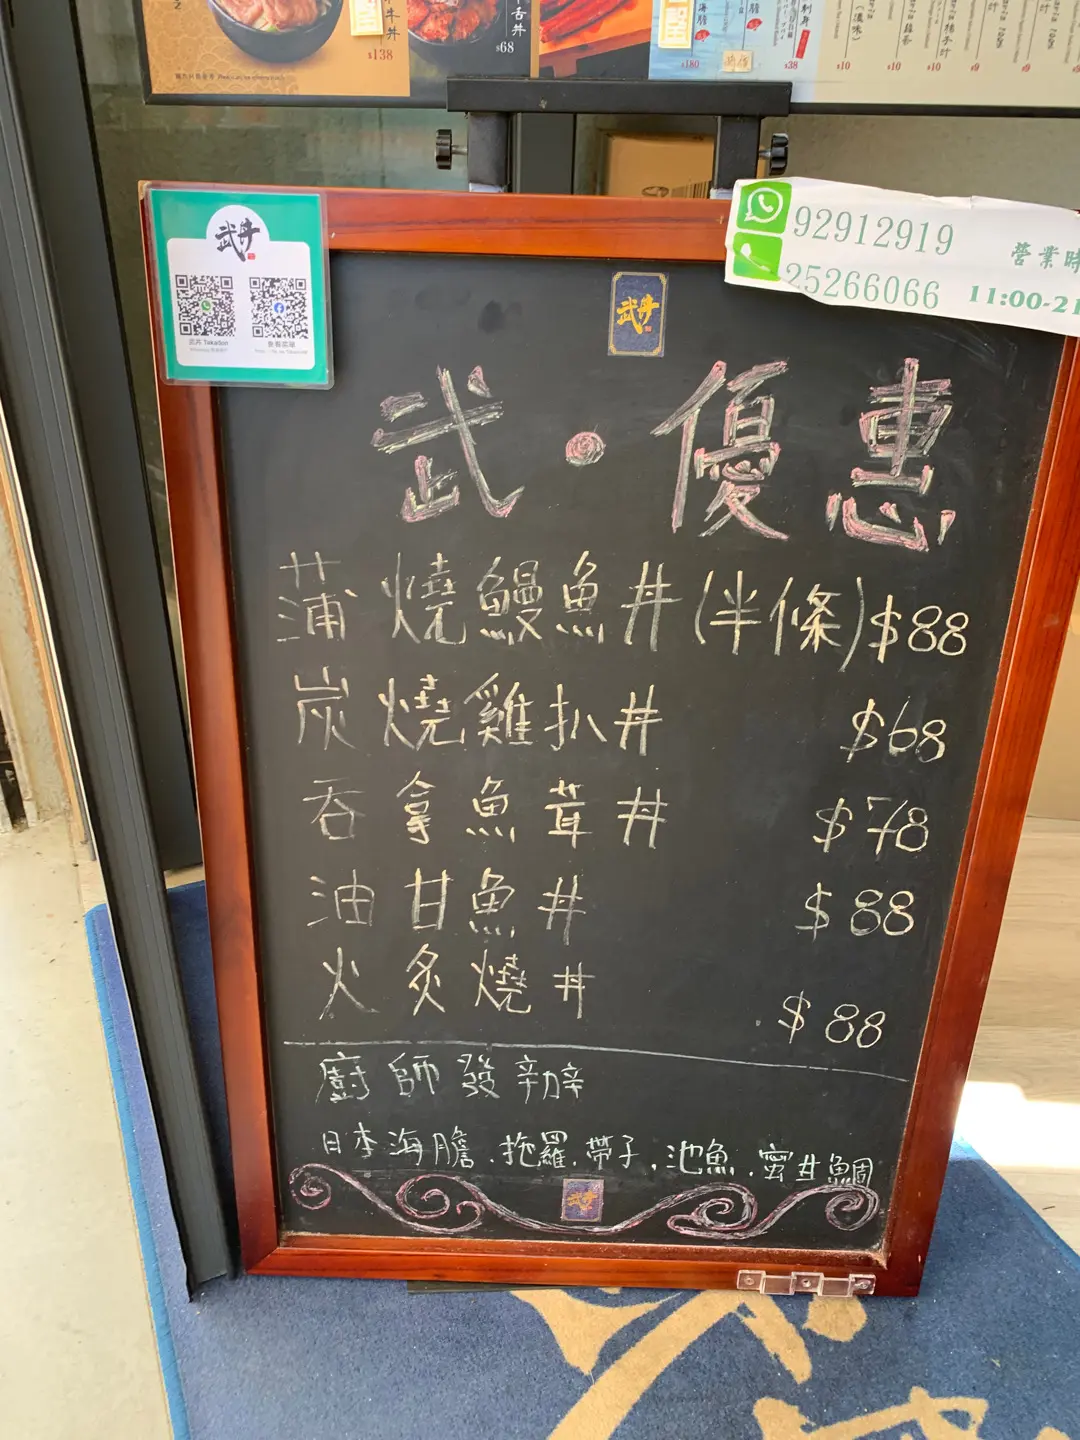 牛丼
$138
舌丼
$68
海膽
$180
$38
$10
$10
$10
$9
$9
武丼
武丼 TakaDon
92912919
25266066
營業時
11:00-21
武丼
武・優惠
蒲燒鰻魚丼(半條)$88
炭燒雞扒丼 $68
吞拿魚茸丼 $78
油甘魚丼 $88
火炙燒丼 $88
廚師發辦
日本海膽.拖羅.帶子.池魚.蜜丼鯛
武丼